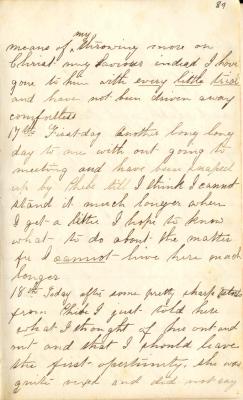 89
means of my throwing more on
Christ my Saviour indeed I have
gone to him with every little trial
and have not been driven away
comfortless
17th First day Another long long
day to me with out going to
meeting and have been snaped
up by Phebe till I think I cannot
stand it much longer when
I get a little I hope to know
what to do about the matter
for I cannot live here much
longer
18th Today after some pretty sharp
from Phebe I just told here
what I thought of her out and
out and that I should leave
the first opertunity, she was
quite vext and did not say